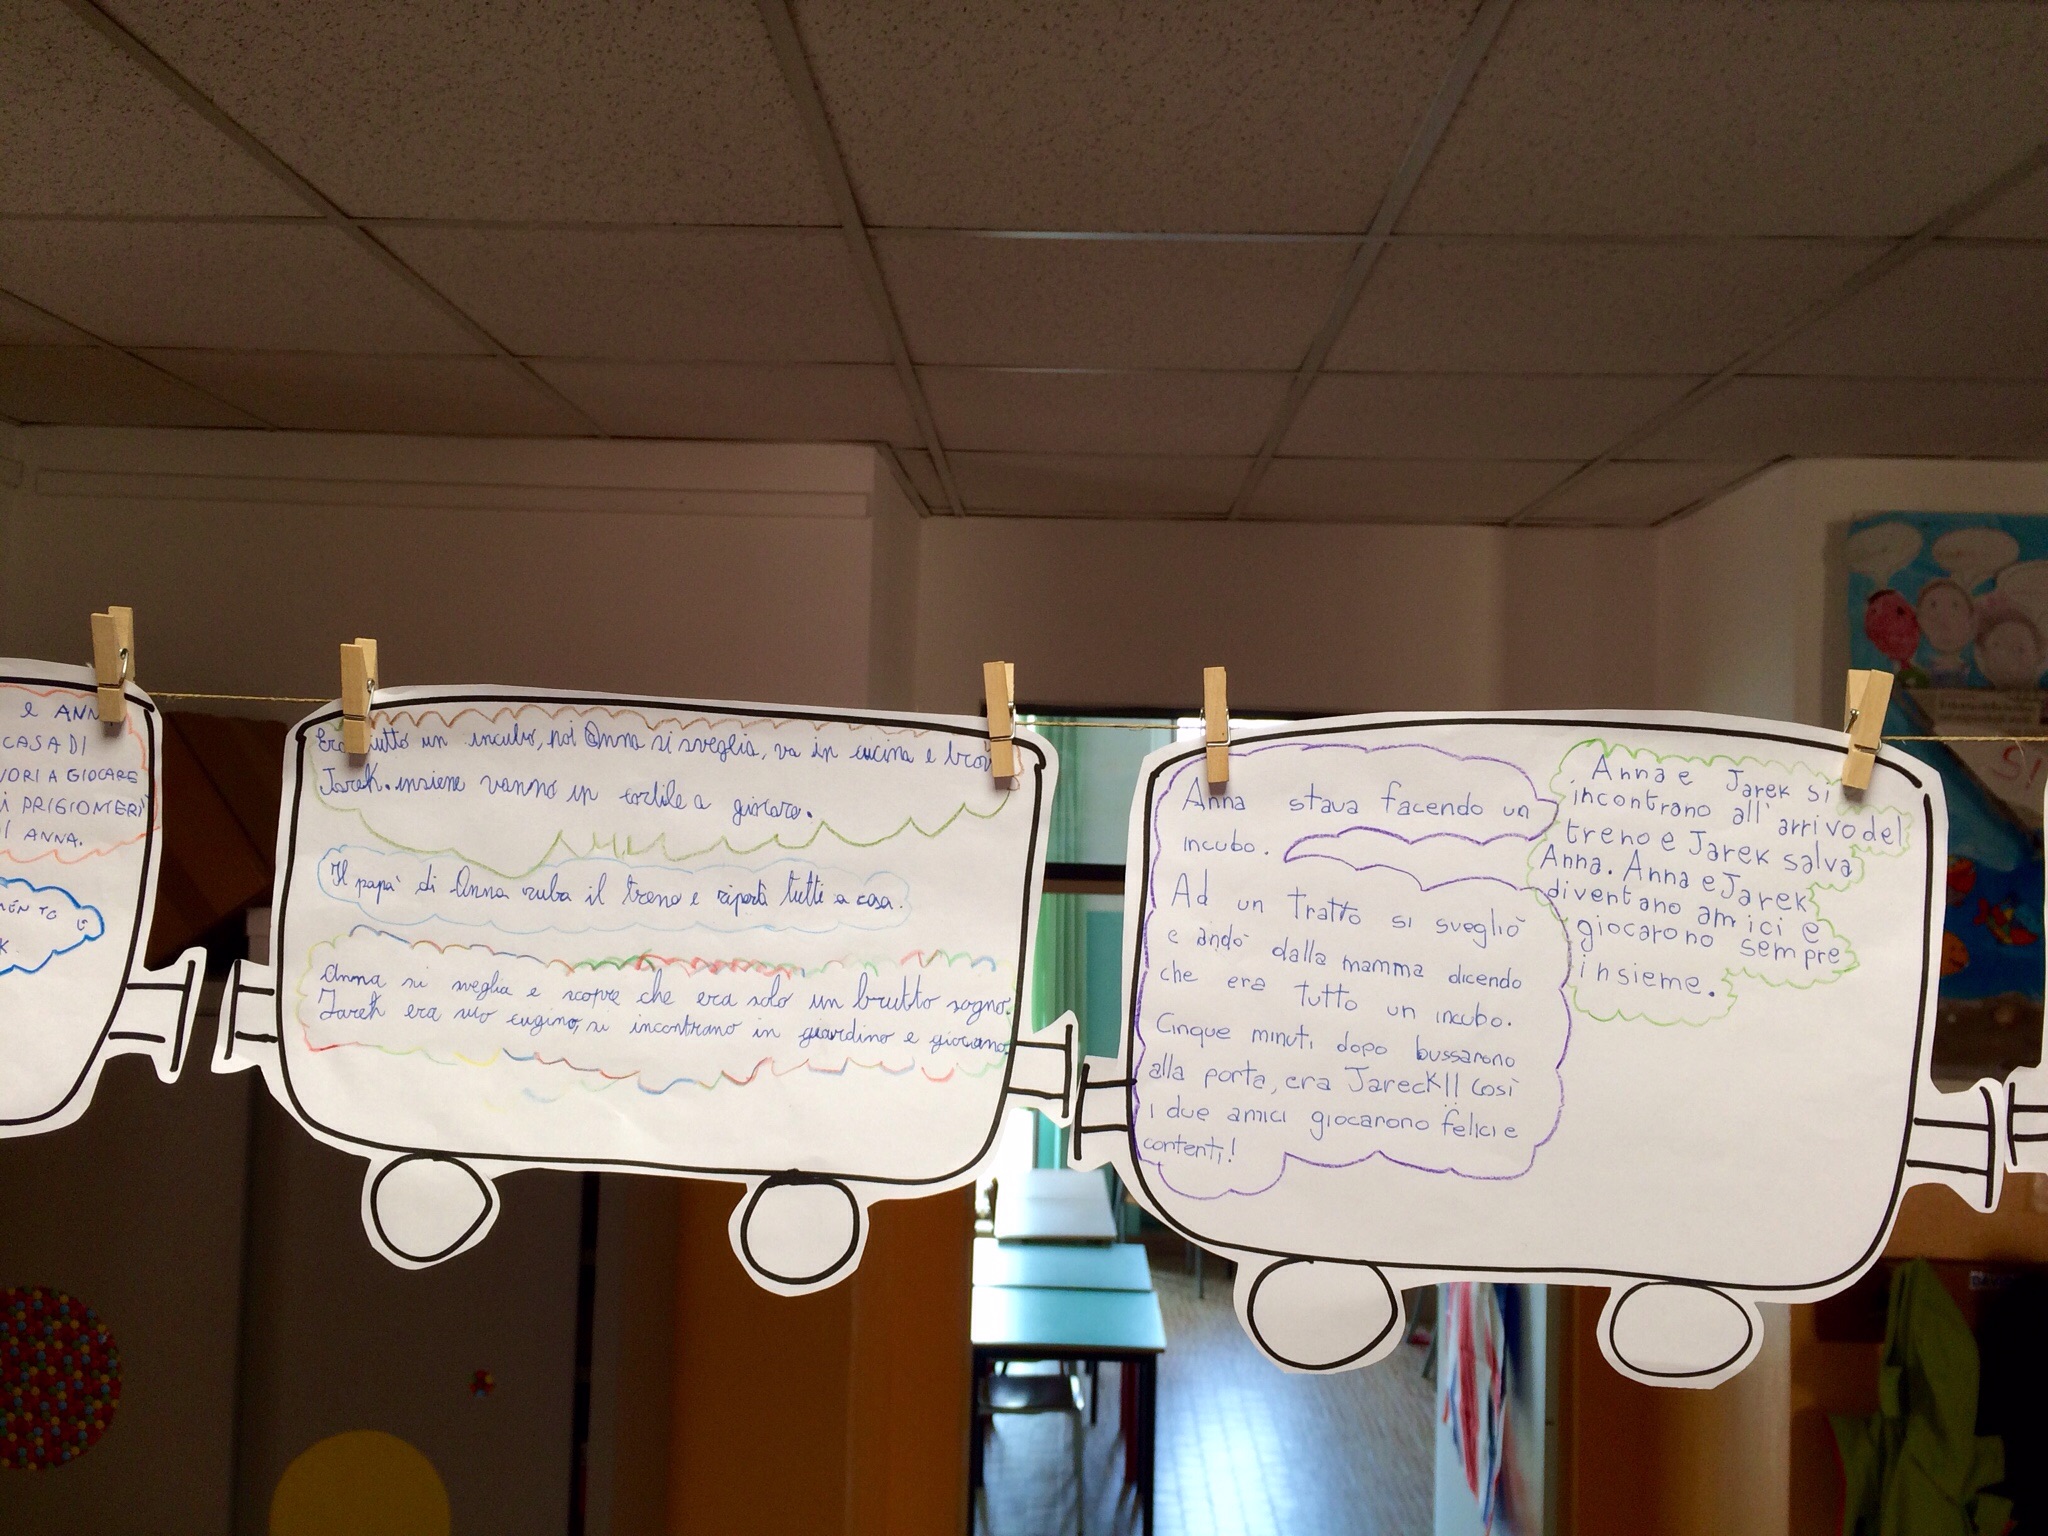 e ANN
CASA DI
VORI A GIOCARE
I PRIGIONIERI
DI ANNA.
MENTO
K.
Era tutto un incubo, poi Anna si sveglia, va in cucina e trov
Jarek. insieme vanno in cortile a giocare.
Il papà di Anna ruba il treno e riportà tutti a casa.
Anna si sveglia e scopre che era solo un brutto sogno.
Jarek era suo cugino, si incontrano in giardino e giocano.
Anna stava facendo un
incubo.
Ad un tratto si svegliò
e andò dalla mamma dicendo
che era tutto un incubo.
Cinque minuti dopo bussarono
alla porta, era Jareck!! Così
i due amici giocarono felici e
contenti!
Anna e Jarek si
incontrano all'arrivo del
treno e Jarek salva
Anna. Anna e Jarek
diventano amici e
giocarono sempre
insieme.